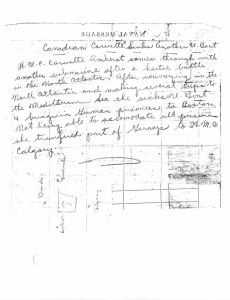 NAVAL MESSAGE
Canadian Corvette Sinks Another U. Boat
H.M.C. Corvette Amherst comes through with
another submarine after a hectic battle
in the North Atlantic. After convoying in the
North Atlantic and making several trips to
the Mediterranean Sea she sinks U. Boat
& brings in German prisoners to Boston.
Not being able to accomodate all prisoners
she transfered part of Germans to H.M.C.
Calgary.